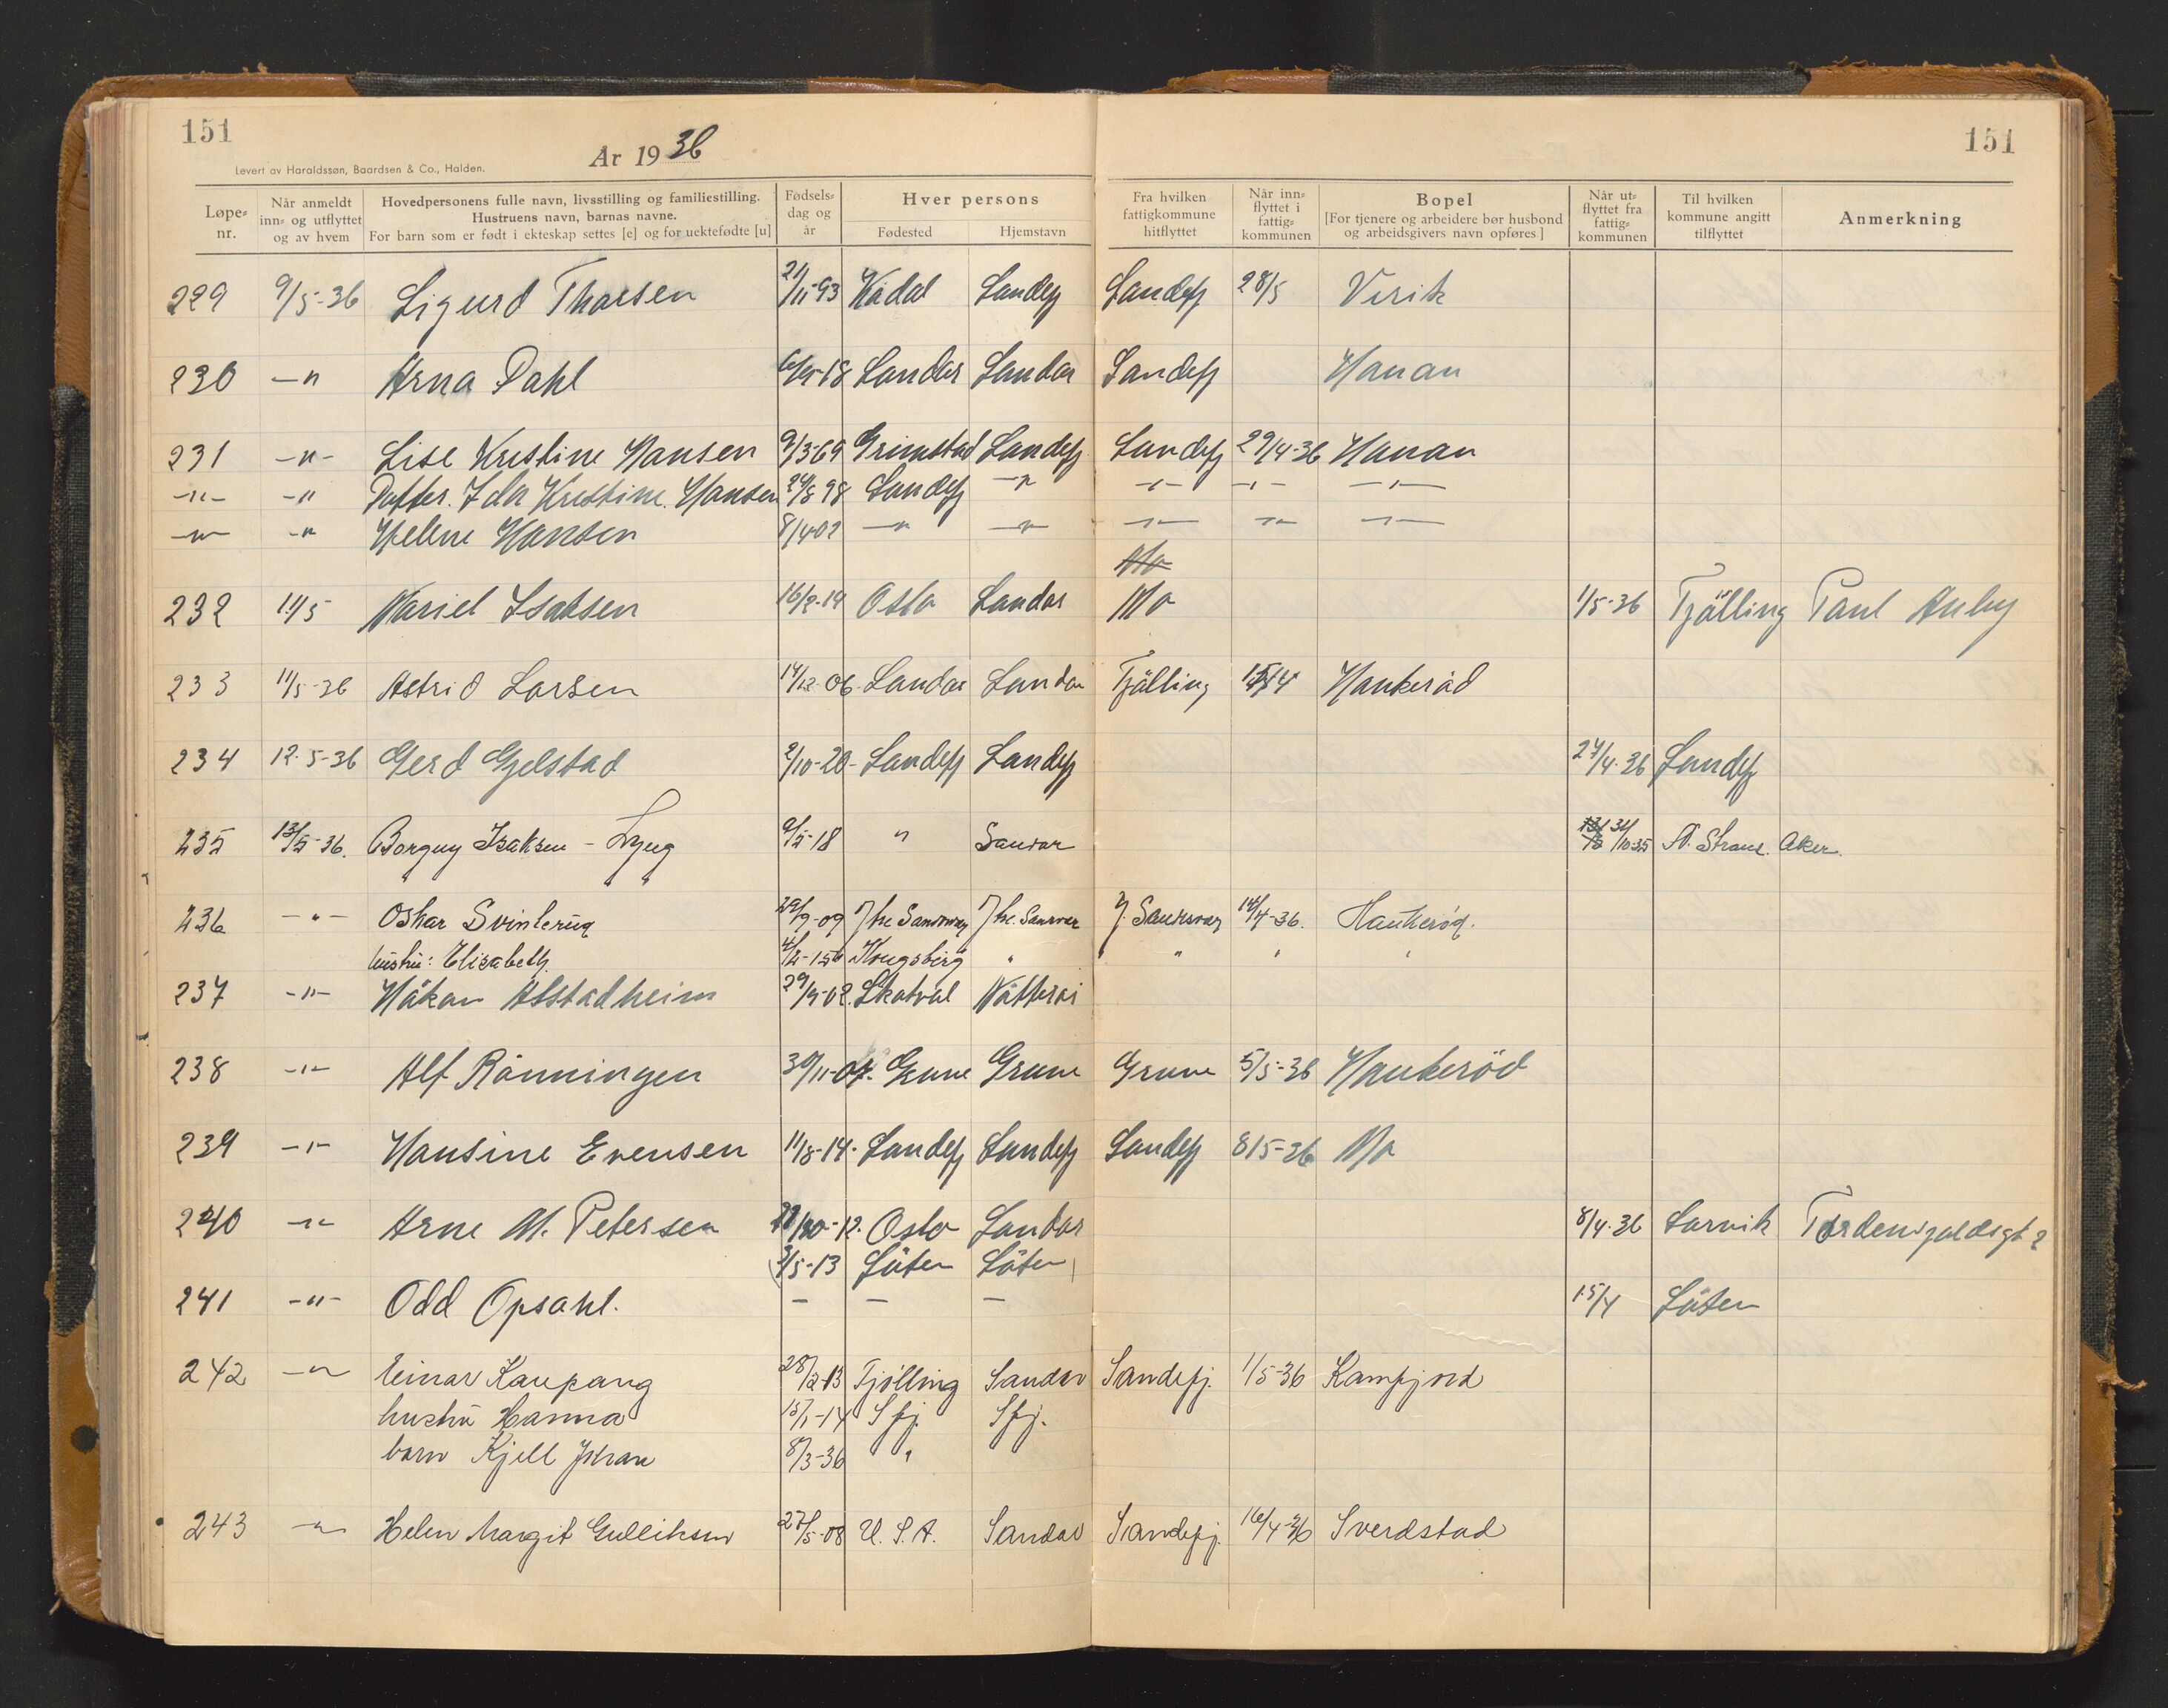 151
151
År 1936
Levert av Haraldssøn, Baardsen & Co., Halden.
Løpe-nr. Når anmeldt inn- og utflyttet og av hvem Hovedpersonens fulle navn, livsstilling og familiestilling. Hustruens navn, barnas navne. For barn som er født i ekteskap settes [e] og for uektefødte [u] Fødsels-dag og år Hver persons Fødested Hjemstavn Fra hvilken fattigkommune hitflyttet Når inn-flyttet i fattig-kommunen Bopel [For tjenere og arbeidere bør husbond og arbeidsgivers navn opføres] Når ut-flyttet fra fattig-kommunen Til hvilken kommune angitt tilflyttet Anmerkning
229 9/5-36 Sigurd Thorsen 21/11-93 Kodal Sandefj Sandefj 28/5 Virik
230 -"- Arna Dahl Sandar Sandar Sandefj Hauan
231 -"- Lise Kristine Hansen 9/3-69 Grimstad Sandefj Sandefj 29/4-36 Hauan
-"- -"- Datter. Ida Kristine Hansen 24/8 98 Sandefj -"- -"- -"- -"-
-"- -"- Helene Hansen 8/4-02 -"- -"- -"- -"- -"-
Mo
232 11/5 Isaksen 16/2-19 Oslo Sandar Mo 1/5-36 Tjölling Paul Auby
233 11/5-36 Astrid Larsen 14/12-06 Sandar Sandar Tjölling Haukeröd
234 12-5-36 Gerd Gjelstad 2/10-20 Sandefj Sandefj 27/4-36 Sandefj
235 13/5-36. Borgny Isaksen - Lyng 9/5-18 " Sandar 31/10 35 A. Strand. Aker.
236 -"- Oskar Svinterud 29/9-09 Ytre Sandsvær Ytre. Sandsvær Y. Sandsvær 14/4-36. Haukerød.
hustru: Elisabeth Kongsberg " " " "
237 -"- Håkon Alstadheim 29/9-02 Skatval Nötterøi
238 -"- Alf Rönningen 30/11-07. Grune Grune Grune 5/5-36 Haukeröd
239 -"- Hansine Evensen 11/8-14. Sandefj Sandefj Sandefj 8/5-36 Mo
240 -"- Arne M. Petersen Oslo Sandar 8/4-36 Larvik Tordenskjoldsgt 2
(3/5-13 Löten Löten)
241 -"- Odd Opsahl. - - - 15/4 Löten
242 -"- Einar Kaupang 28/2-13 Tjölling Sandar Sandefj. 1/5-36 Kamfjord
hustru Hanna 15/1-14 Sfj. Sfj.
barn Kjell Johan 8/3-36 "
243 -"- Helen Margit Gulliksen 27/5-08 U.S.A. Sandar Sandefj. 16/4-36 Sverdstad